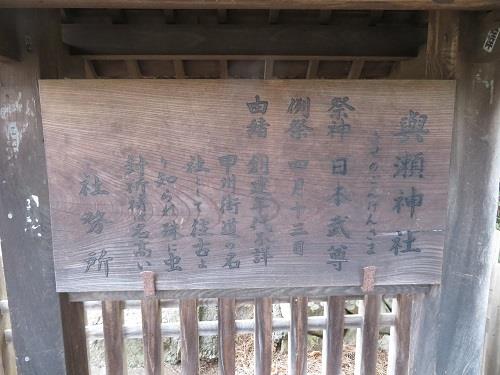 與瀬神社
よせのごんげんさま
祭神 日本武尊
例祭 四月十三日
由緒 創建年代不詳
甲州街道の名
社として往古よ
り知られ殊に虫
封祈祷は名高い
社務所